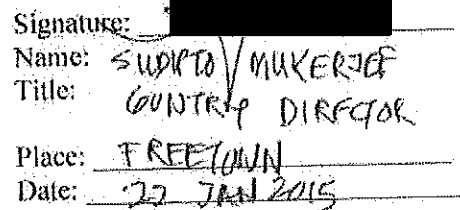 Signature:
Name: SUDIPTO MUKERJEE
Title: COUNTRY DIRECTOR
Place: FREETOWN
Date: 22 JAN 2015